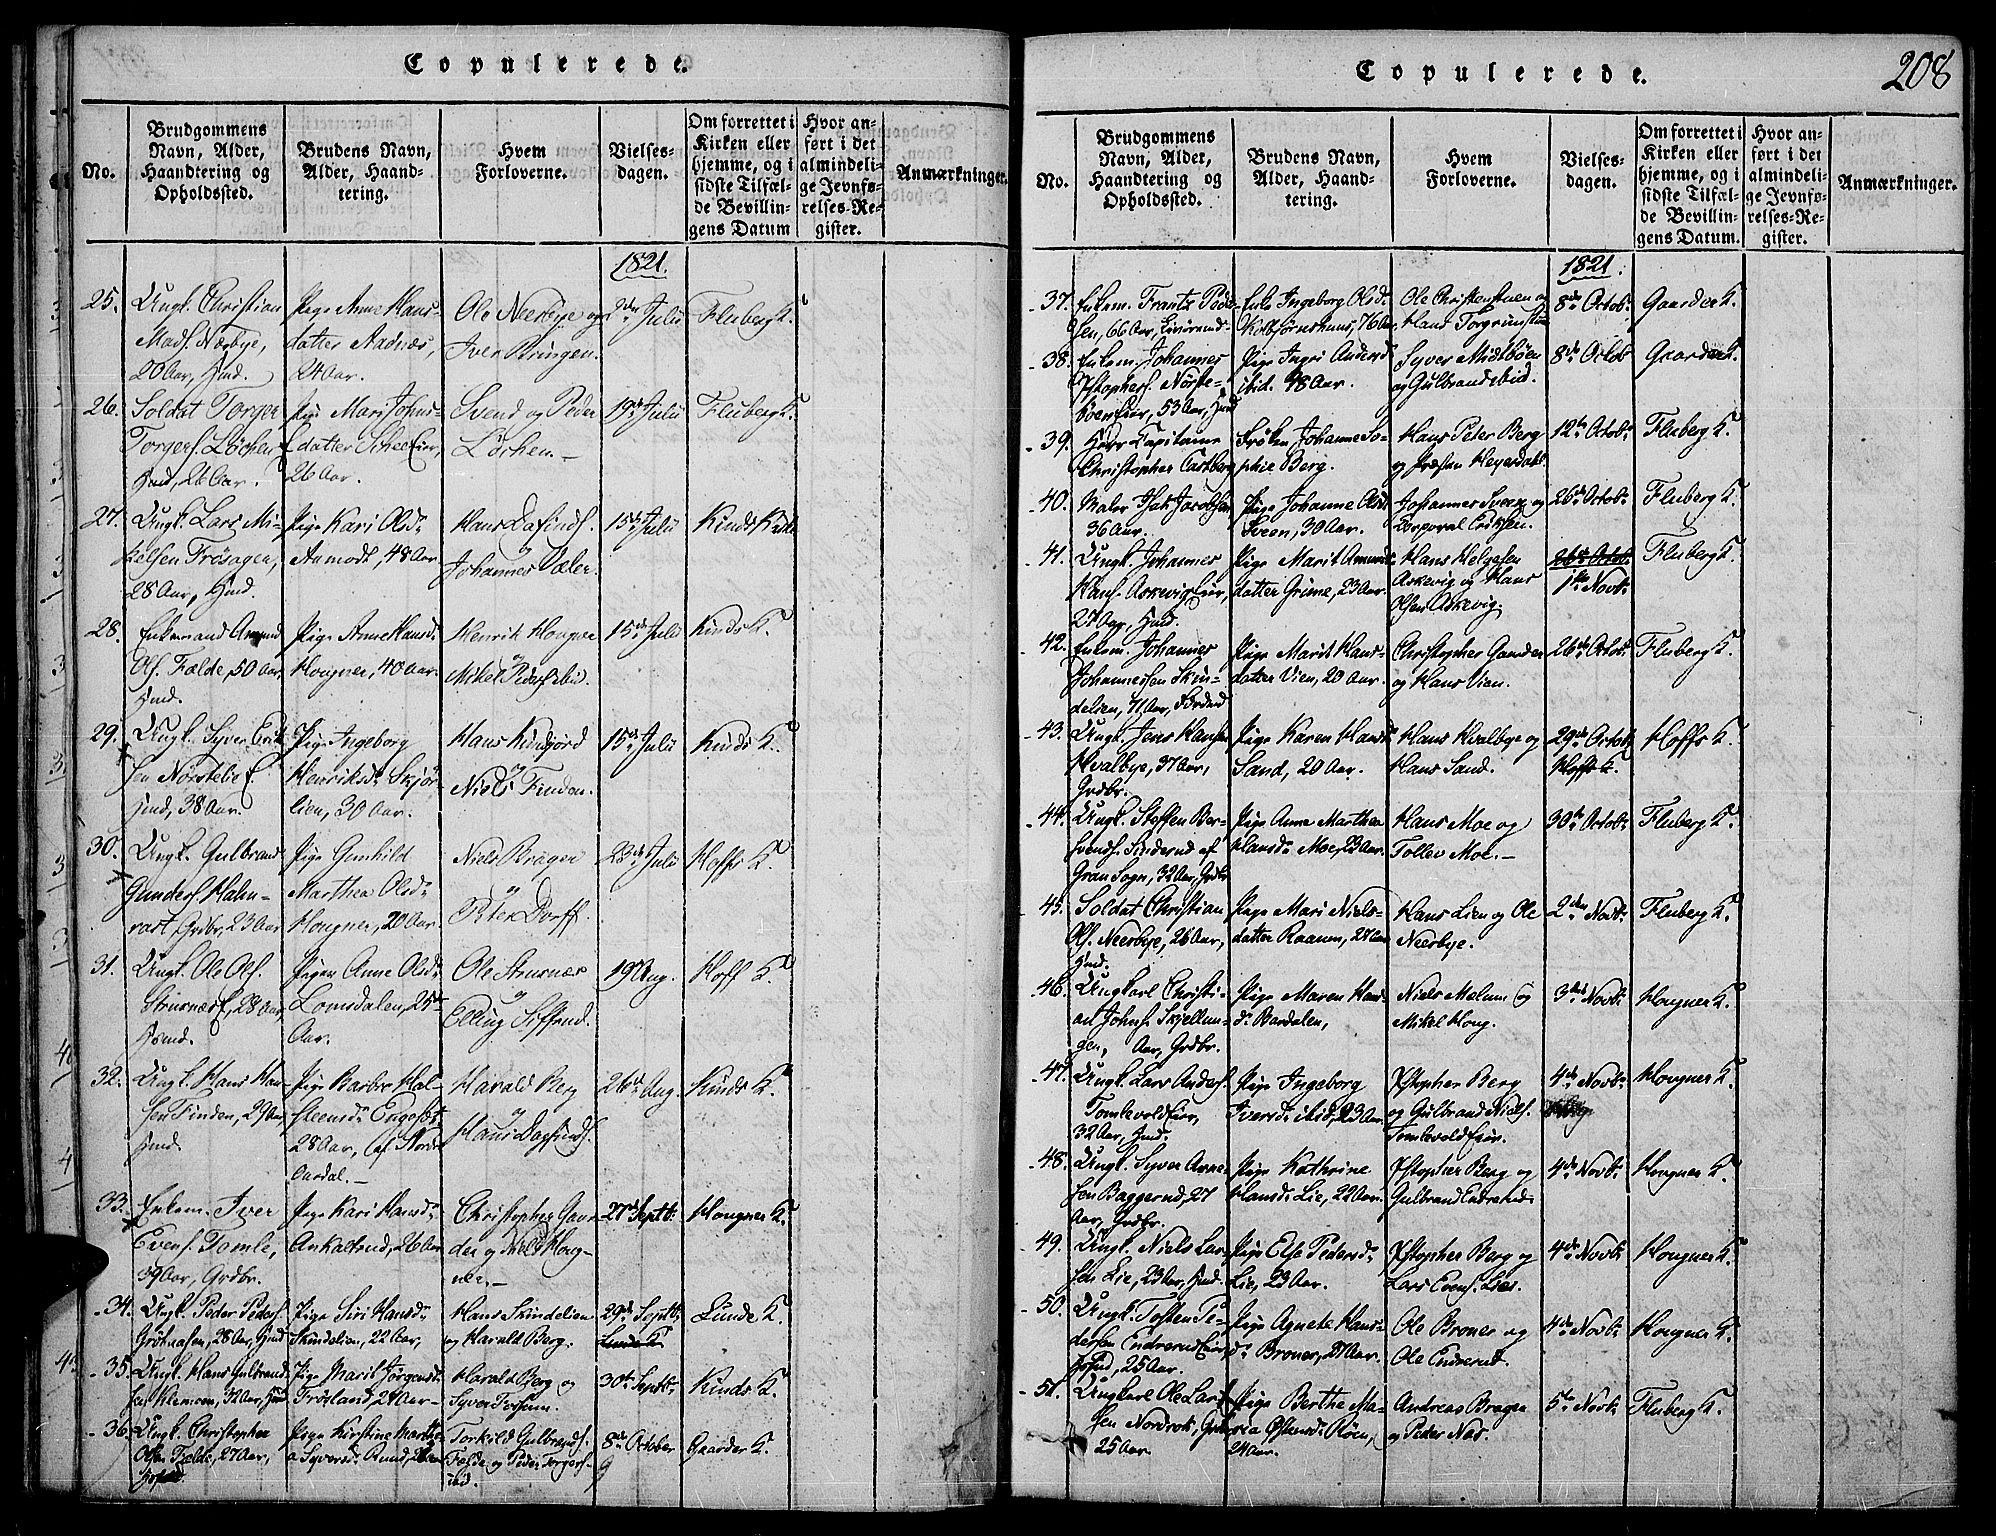 Copulerede.
No.
Brudgommens
Navn, Alder,
Haandtering og
Opholdssted.
Brudens Navn,
Alder, Haand-
tering.
Hvem
Forloverne.
Vielses-
dagen.
Om forrettet i
Kirken eller
hjemme, og i
sidste Tilfæl-
de Bevillin-
gens Datum
Hvor an-
ført i det
almindeli-
ge Jevnfø-
relses-Re-
gister.
Anmærkninger.
1821.
25. Ungk. Christian
Mads. Nærbye,
20 Aar, Hmd.
Pige Anne Hans-
datter Aadnæs,
24 Aar.
Ole Neerbye og
Iver Bringen.
2den Julii
Fluberg K.
26. Soldat Torger
Torgers. Löchen
Hmd, 26 Aar.
Pige Mari Johns-
datter
26 Aar.
Svend og Peder
Löchen.
19de Julii
Fluberg K.
27. Ungk. Lars Mi-
kelsen Frösagen,
28 Aar, Hmd.
Pige Kari Olsd.
Aamodt, 48 Aar
Hans Dafinds.
og
Johannes Væler.
15de Julii
Kinds Kirke
28. Enkemand Amund
Ols. Fælde, 50 Aar,
Hmd.
Pige Anne Hansd.
Hougner, 40 Aar.
Henrik Hougner
og
Mikel Peders. ibid.
15de Julii
Kinds K.
29. Ungk. Syver Erik-
sen Nörstebö E.
Hmd, 38 Aar.
Pige Ingeborg
Henriksd. Skjör-
lien, 30 Aar.
Hans Kindfjord
og
Niels Finden.
15de Julii
Kinds K.
30. Ungk. Gulbrand
Gunders. Halm-
rast, Grdbr, 23 Aar
Pige Gunhild
Marthea Olsd.
Hougner, 20 Aar.
Niels Brager
og
Peter Dorff.
22de Julii
Hoffs K.
31. Ungk. Ole Ols.
28 Aar,
Hmd.
Pigen Anne Olsd.
Lomsdalen, 25
Aar.
Ole
og
Elling Siffrud.
19de Aug.
Hoff K.
32. Ungk. Hans Han-
sen Finden, 29 Aar
Hmd.
Pige Barbro Hal-
steensd.
28 Aar, af Nordr.
Aardal.
Harald Berg
og
Hans Dagfinds.
26de Aug.
Kinds K.
33. Enkem. Iver
Evens. Tomle,
39 Aar, Grdbr.
Pige Kari Hansd.
Ankaltrud, 26 Aar
Christopher Gaar-
der og Niels Houg-
ner.
27de Septbr.
Hougner K.
34. Ungk. Peder Peders.
28 Aar, Hmd
Pige Siri Hansd.
Skindelien, 22 Aar,
Hans Skindelien
og Harald Berg.
29de Septbr.
Lunde K.
Lunde K.
35. Ungk. Hans Gulbrand-
sen Klemoen, 32 Aar, Hmd
Pige Marit Jörgensd.
Fröslund, 24 Aar
Harald Berg og
Syver
30te Septbr.
Kinds K.
36. Ungk. Christopher
Olsen Fælde, 27 Aar,
Pige Kirstine Marthe-
a Syversd. Rund,
Torkild Gulbrands.
Fælde og Peder Torgers.
ibid.
8de October
Gaarder K.
Copulerede.
208
No.
Brudgommens
Navn, Alder,
Haandtering og
Opholdssted.
Brudens Navn,
Alder, Haand-
tering.
Hvem
Forloverne.
Vielses-
dagen.
Om forrettet i
Kirken eller
hjemme, og i
sidste Tilfæl-
de Bevillin-
gens Datum.
Hvor an-
ført i det
almindeli-
ge Jevnfø-
relses-Re-
gister.
Anmærkninger.
1821.
37. Enkem. Frantz Peder-
sen, 66 Aar,
Enke Ingeborg Olsd.
76 Aar
Ole Christenstuen og
Hans Torgrimstuen
8de Octob.
Gaarder K.
38. Enkem. Johannes
Xstophers. Nörste-
böen Eier, 53 Aar, Hmd
Pige Ingri Andersd.
ibid. 48 Aar.
Syver Midtböen
og Gulbrand ibid.
8de Octob.
Gaarder K.
39. Herr Capitaine
Christopher Castberg
Fröken Johanne So-
phie Berg.
Hans Peter Berg
og Præsten Heyerdahl
12te Octob.
Fluberg K.
40. Maler Isak Jacobsen
36 Aar.
Pige Johanne Olsd.
Sveen, 30 Aar.
Johannes Sveen og
Corporal Eriksen.
26de Octob.
Fluberg K.
41. Ungk. Johannes
Hans. Askevig Eier,
27 Aar, Hmd.
Pige Marit Amunds-
datter Grime, 23 Aar.
Hans Helgesen
Askevig og Hans
Olsen Askevig.
26de Octob.
1ste Novb.
Fluberg K.
42. Enkem. Johannes
Johannessen Skin-
delien, 71 Aar,
Pige Marit Hans-
datter Vien, 20 Aar.
Christopher Gaarder
og Hans Vien.
26de Octob.
Fluberg K.
43. Ungk. Jens Hansen
Hvalbye, 37 Aar,
Grdbr.
Pige Karen Hansd.
Sand, 20 Aar.
Hans Hvalbye og
Hans Sand.
29de Octob.
Hoffs K.
Hoffs K.
44. Ungk. Stoffen Ber-
af
Gran Sogn, 32 Aar, Grdbr
Pige Anne Marthea
Hansd. Moe, 23 Aar.
Hans Moe og
Tollev Moe.
30te Octob.
Fluberg K.
45. Soldat Christian
Ols. Neerbye, 26 Aar,
Hmd.
Pige Mari Niels-
datter Raaum, 24 Aar
Hans Lien og Ole
Neerbye.
2den Novb.
Fluberg K.
46. Ungkarl Christi-
an Johns. Skjellun-
gen, Aar, Grdbr.
Pige Maren Han-
sd. Bardalen,
Niels Malum og
Mikel Houg.
3die Novb.
Hougner K.
47. Ungk. Lars Anders.
Tomlevold Eier,
32 Aar, Hmd.
Pige Ingeborg
Iversd. ibid, 23 Aar.
Xstopher Berg
og Gulbrand Niels.
Tomlevold Eier.
4de Novb.
Hougner K.
48. Ungk. Syver Arne-
sen Baggerud, 27
Aar, Grdbr.
Pige Kathrine
Hansd. Lie, 22 Aar.
Xstopher Berg og
Gulbrand Endrerud.
4de Novb.
Hougner K.
49. Ungk. Niels Lar-
sen Lie, 23 Aar, Hmd.
Pige Else Pedersd.
Lie, 23 Aar.
Xstopher Berg og
Lars Evens. Lie.
4de Novb.
Hougner K.
50. Ungk. Tosten Pe-
dersen Endrerud Eier,
Hmd, 25 Aar.
Pige Agnete Hans-
d. Broner, 27 Aar.
Ole Broner og
Ole Endrerud.
4de Novb.
Hougner K.
51. Ungkarl Ole Lar-
sen Nordrok,
25 Aar.
Pige Berthe Ma-
ria Östensd. Röen,
24 Aar.
Andreas Brager
og Peder Næs.
5te Novb.
Fluberg K.